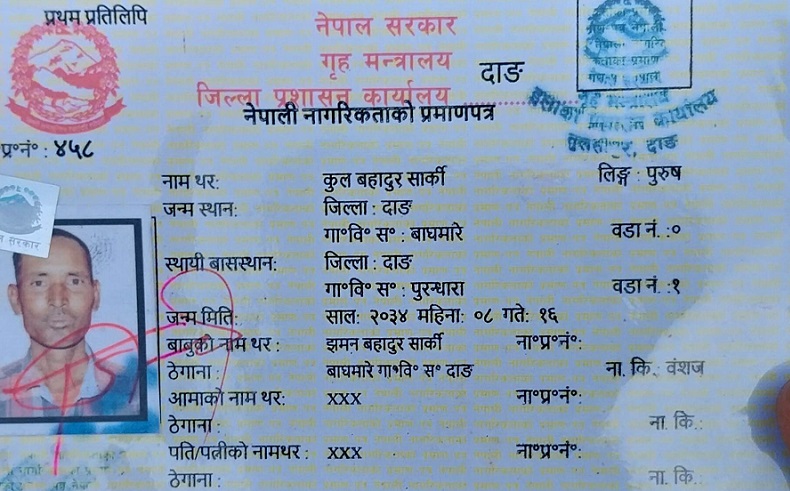 प्रथम प्रतिलिपि
नेपाल सरकार
गृह मन्त्रालय
जिल्ला प्रशासन कार्यालय दाङ
नेपाली नागरिकताको प्रमाणपत्र
गृह मन्त्रालय
प्रशासन कार्यालय
दाङ
प्र०नं० : ४५८
नाम थर: कुल बहादुर सार्की लिङ्ग : पुरुष
जन्म स्थान: जिल्ला : दाङ
गा०वि० स० : बाघमारे वडा नं. :०
स्थायी बासस्थान: जिल्ला : दाङ
गा०वि० स० : पुरन्धारा वडा नं. :१
जन्म मिति: साल: २०३४ महिना: ०८ गते: १६
बाबुको नाम थर : झमन बहादुर सार्की ना०प्र०नं०:
ठेगाना : बाघमारे गा०वि० स० दाङ ना. कि.: वंशज
आमाको नाम थर: xxx ना०प्र०नं०:
ठेगाना : ना. कि.:
पति/पत्नीको नामथर : xxx ना०प्र०नं०:
ठेगाना : ना. कि.: